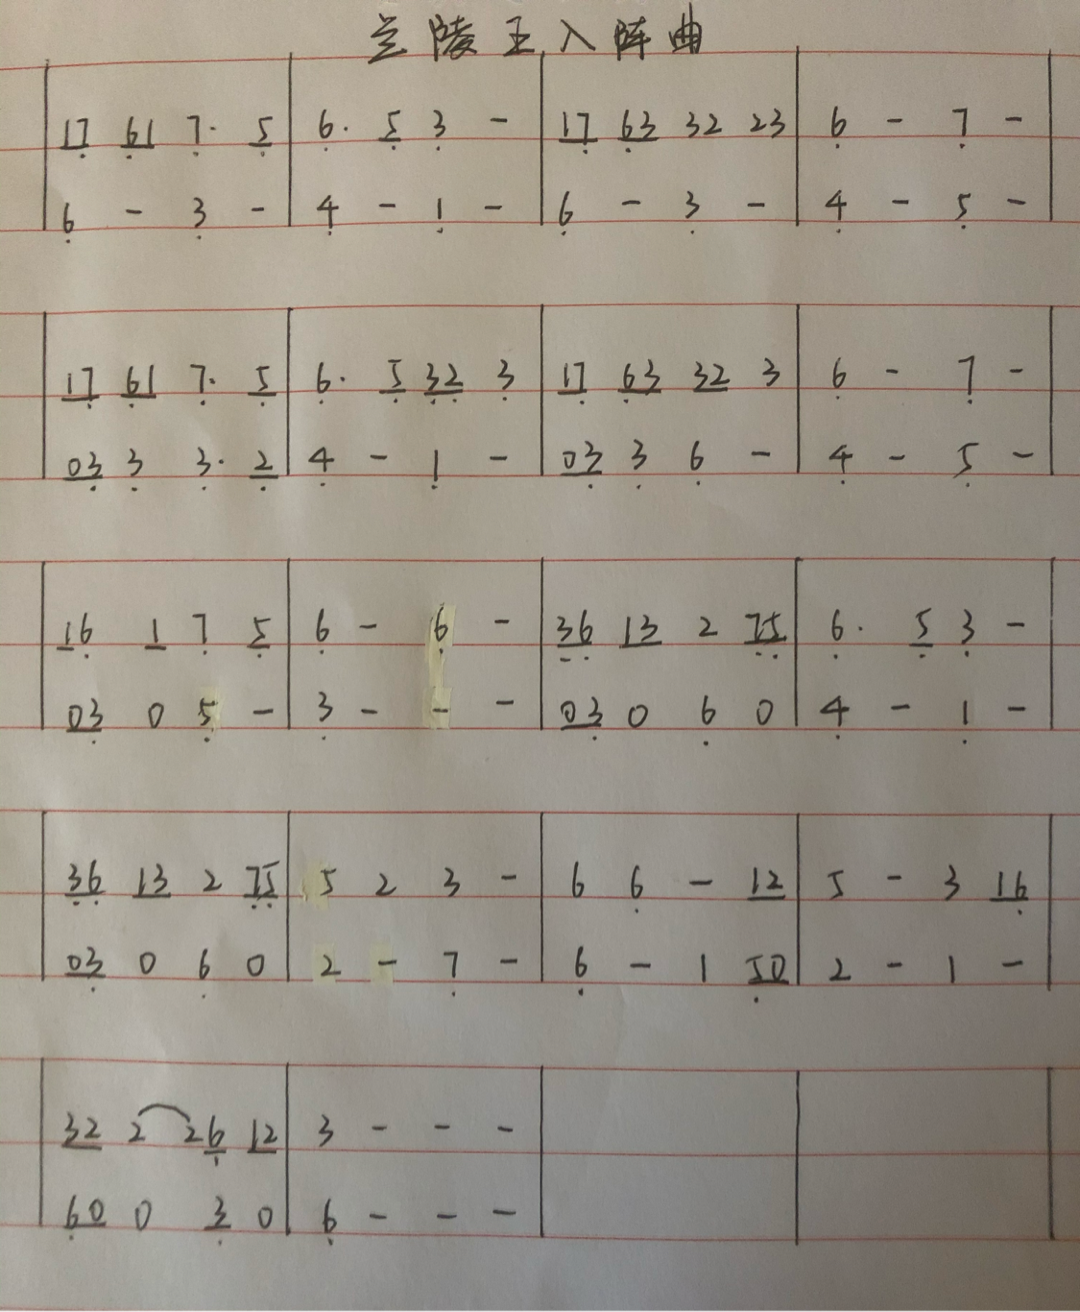 兰陵王入阵曲
17 61 7· 5 | 6· 5 3 - | 17 63 32 23 | 6 - 7 -
6 - 3 - | 4 - 1 - | 6 - 3 - | 4 - 5 -
17 61 7· 5 | 6· 5 32 3 | 17 63 32 3 | 6 - 7 -
03 3 3· 2 | 4 - 1 - | 03 3 6 - | 4 - 5 -
16 1 7 5 | 6 - 6 - | 36 13 2 75 | 6· 5 3 -
03 0 5 - | 3 - - - | 03 0 6 0 | 4 - 1 -
36 13 2 75 | 5 2 3 - | 6 6 - 12 | 5 - 3 16
03 0 6 0 | 2 - 7 - | 6 - 1 50 | 2 - 1 -
32 2 26 12 | 3 - - -
60 0 3 0 | 6 - - -